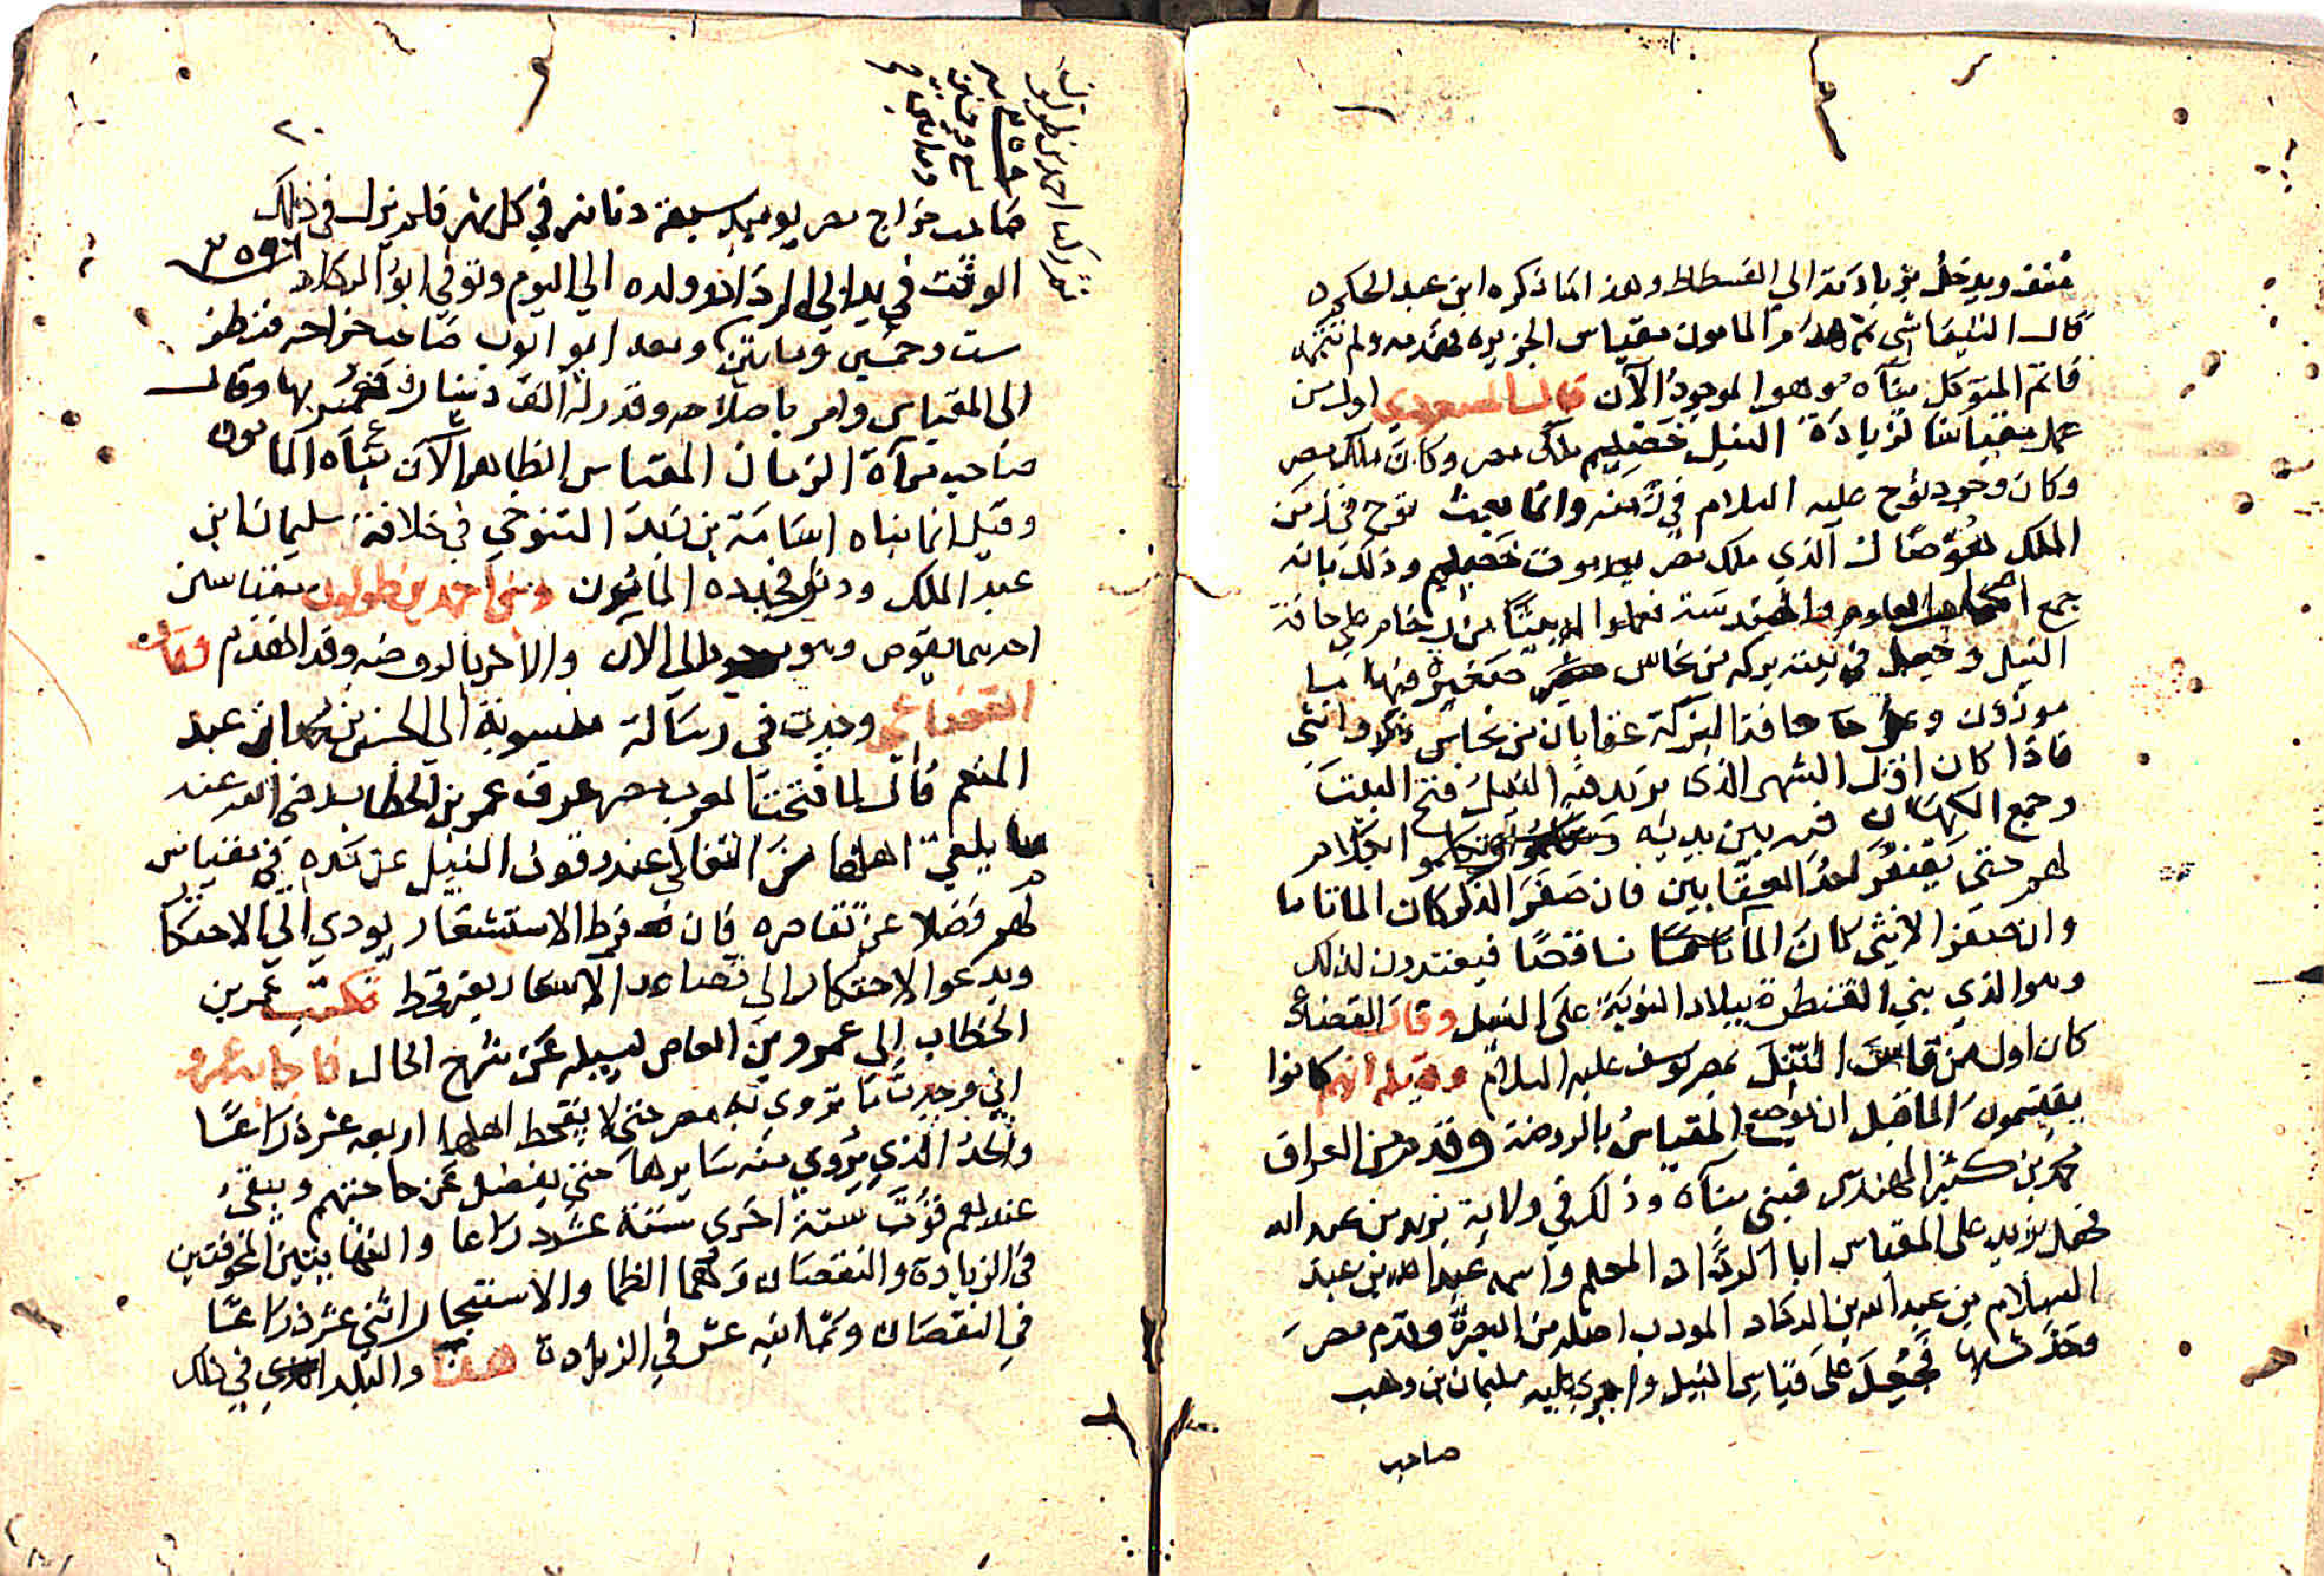 منف ويدخل بزيادته الي الفسطاط وهذا ما ذكره ابن عبد الحكم
قال التيفاشي ثم هدم المامون مقياس الجزيره ولم يتمه
فاتم المتوكل بناه وهو الموجود الآن قال المسعودي اول من
عمل مقياسا لزيادة النيل خصليم ملك مصر وكان ملك مصر
وكان وجود نوح عليه السلام في زمنه وانما بعث نوح في زمن
الملك الذي ملك مصر بعد موت خصليم وذلك بانه
جمع اصحاب العلوم والهندسة فعملوا له بيتا من رخام على حافة
النيل وجعل في بيته بركه من نحاس صغيرة فيها ما
موزون وعلى حافة البركة عقابان من نحاس ذكر وانثى
فاذا كان اول الشهر الذي يزيد فيه النيل فتح البيت
وجمع الكهان فيه بين يديه وتكلموا بكلام
لهم حتى يصفر احد العقابين فان صفر الذكر كان الما تاما
وان صفر الانثى كان الما ناقصا فيعتدون لذلك
وهو الذي بنى القنطرة ببلاد النوبة على النيل وقال القضاعي
كان اول من قاس النيل بمصر يوسف عليه السلام وقيل انهم كانوا
يقسمون الما قبل ان يوضع المقياس بالروضة وقدم من العراق
محمد بن كثير المهندس فبنى بناه وذلك في ولاية يزيد بن عبد الله
فجعل يزيد على المقياس ابا الرداد المعلم واسمه عبد الله بن عبد
السلام بن عبد الله بن الرداد المودب اصله من البصرة وقدم مصر
وحدث بها فجعل على قياس النيل واجرى عليه سليمان بن وهب
صاحب
احمد بن طولون
٢٠
صاحب خراج مصر يوميذ سبعة دنانير في كل شهر فلم يزل في ذلك
الوقت في يد ابي الرداد وولده الي اليوم وتوفي ابو الرداد
ست وخمسين ومايتين وبعد ابو ايوب صاحب خراجه فنظر
الى المقياس وامر باصلاحه وقدر له الف دينار فعمر بها وقال
صاحب مرآة الزمان المقياس الظاهر الآن بناه المامون
وقيل انما بناه اسامة بن زيد التنوخي في خلافة سليمان ابن
عبد الملك ودثر فجدده المامون وبنى احمد بن طولون مقياسين
احدهما بقوص وهو موجود الى الان والاخر بالروضه وقد انهدم وقال
القضاعي وجدت في رسالة منسوبة الي الحسن بن محمد بن عبد
المنعم قال لما فتحت العرب مصر عرف عمر بن الخطاب رضي الله عنه
ما يلقى اهلها من الغلا عند وقوف النيل عن مده في مقياس
لهم فضلا عن تقاصره فان فرط الاستشعار يودي الي الاحتكار
ويدعوا الاحتكار الى تصاعد الاسعار بغير قحط فكتب عمر بن
الخطاب الى عمرو بن العاص ليساله عن شرح الحال فاجابه عمرو
اني وجدت ما تروى به مصر حتى لا يقحط اهلها اربعه عشر ذراعا
والحد الذي يروي منه سايرها حتى يفضل عن حاجتهم ويبقى
عندهم قوت سنة اخرى ستة عشر ذراعا والنهايتين المخوفتين
في الزيادة والنقصان وهما الظما والاستبحار اثني عشر ذراعا
في النقصان وثمانيه عشر في الزيادة هذا والبلد في ذلك